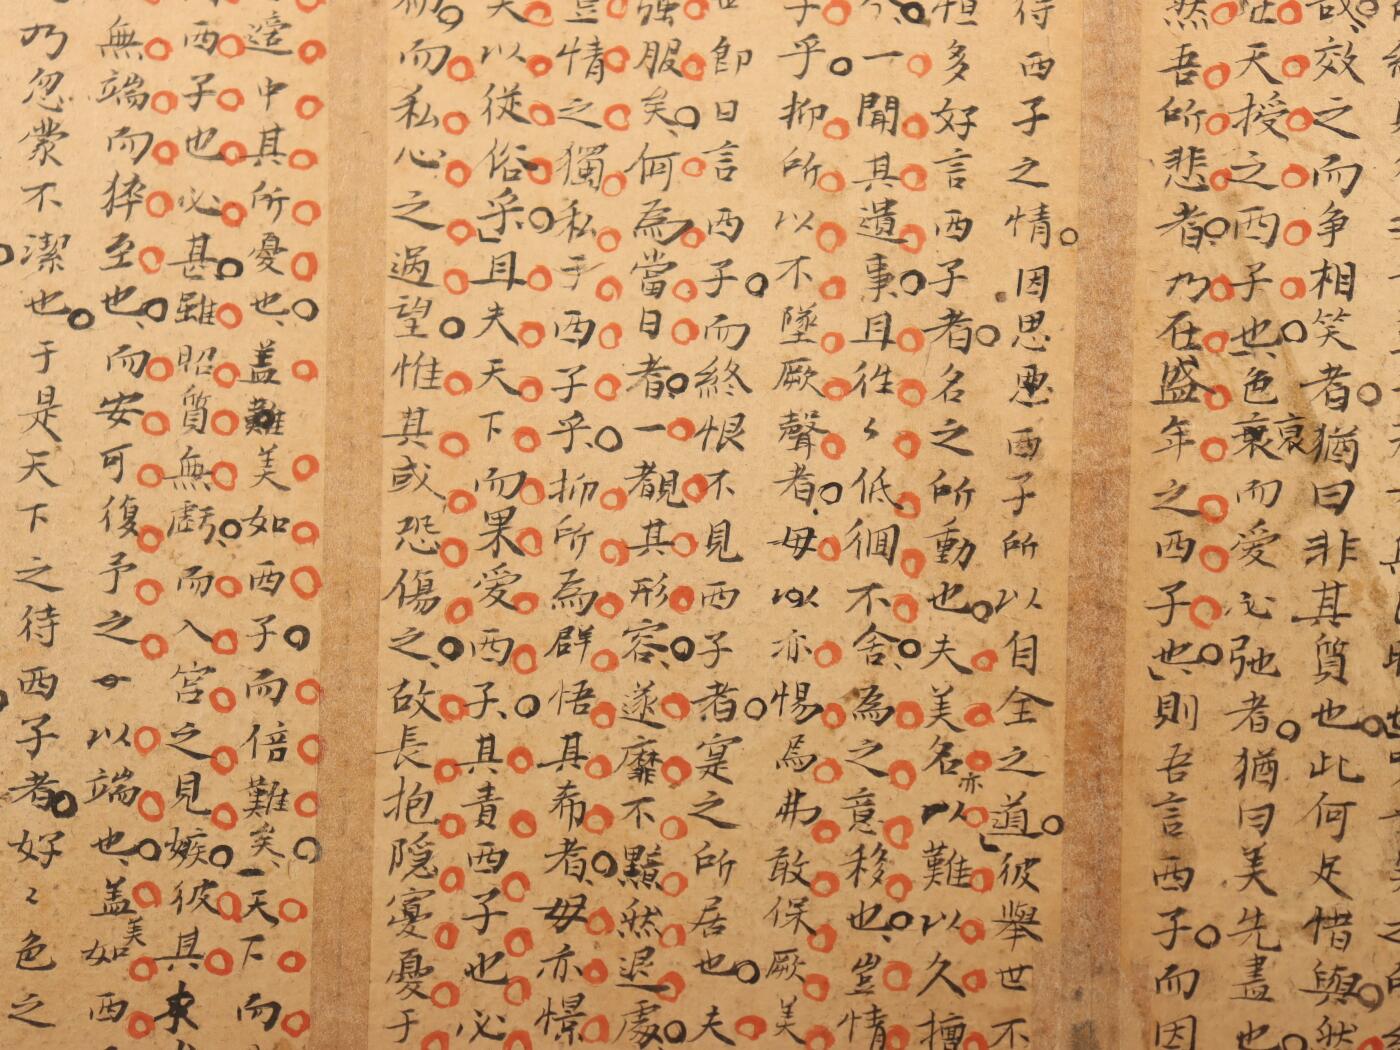 哉效之而争相笑者猶曰非其質也此何足惜與然
在天授之西子也色衰而愛必弛者猶曰美先盡也
然吾所悲者乃在盛年之西子也則吾言西子而因
待西子之情因思西子所以自全之道彼舉世不
恒多好言西子者名之所動也夫美名亦以難以久擅
一聞其遺事且徃々低徊不舍為之意移也豈情
子乎抑所以不墜厥聲者毋以亦惕焉弗敢保厥美
即日言西子而終恨不見西子者寔之所居也夫
強服矣何為當日者一覩其形容遂靡不黯然退處
豈情之獨私于西子乎抑所為群悟其希者毋亦憬
矣以從俗乎且夫天下而果愛西子其責西子也必
而私心之過望惟其或恐傷之故長抱隱憂憂于
邊中其所憂也盖難美如西子而倍難矣天下而
西子也必甚雖昭質無虧而入宮之見嫉彼其
無端而猝至也而安可復予之以端也盖美如西
乃忽蒙不潔也于是天下之待西子者好々色之